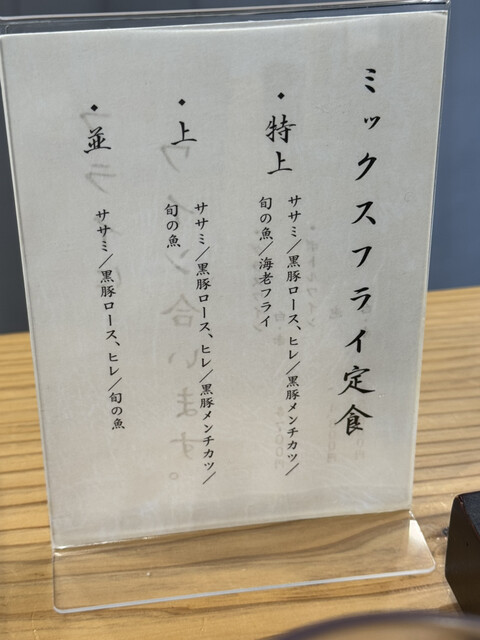 ミックスフライ定食
・特上
ササミ／黒豚ロース、ヒレ／黒豚メンチカツ／
旬の魚／海老フライ
・上
ササミ／黒豚ロース、ヒレ／黒豚メンチカツ／
旬の魚
・並
ササミ／黒豚ロース、ヒレ／旬の魚